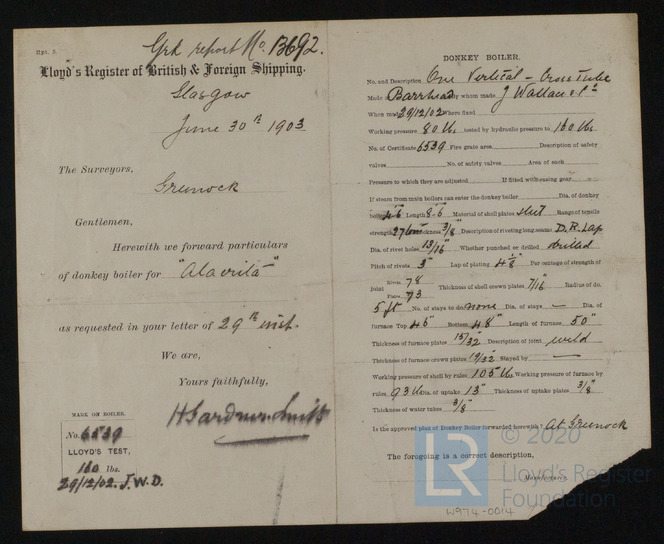 Rpt. 5.
Grk report No. 13692.
Lloyd's Register of British & Foreign Shipping.
Glasgow
June 30th 1903
The Surveyors,
Greenock
Gentlemen,
Herewith we forward particulars
of donkey boiler for "Alavita"
as requested in your letter of 29th inst.
We are,
Yours faithfully,
H Gardner-Smith
MARK ON BOILER.
No. 6539
LLOYD'S TEST,
160 lbs.
29/12/02. J.W.D.
DONKEY BOILER.
No. and Description One Vertical - Cross Tube
Made Barrhead by whom made J Wallace &
When made 29/12/02 Where fixed
Working pressure 80 lbs tested by hydraulic pressure to 160 lbs.
No. of Certificate 6539 Fire grate area Description of safety
valves No. of safety valves Area of each
Pressure to which they are adjusted If fitted with easing gear
If steam from main boilers can enter the donkey boiler Dia. of donkey
boiler 4-6 Length 8-6 Material of shell plates steel Range of tensile
strength 27 Thickness 3/8" Description of riveting long. seams D.R. Lap
Dia. of rivet holes 13/16" Whether punched or drilled drilled
Pitch of rivets 3" Lap of plating 4 1/8" Per centage of strength of
joint Rivets 78 Thickness of shell crown plates 7/16" Radius of do.
Plates 73
5 ft No. of stays to do. none Dia. of stays — Dia. of
furnace Top 45" Bottom 48" Length of furnace 50"
Thickness of furnace plates 15/32 Description of joint weld
Thickness of furnace crown plates 19/32 Stayed by —
Working pressure of shell by rules 105 lb Working pressure of furnace by
rules 93 lb Dia. of uptake 13" Thickness of uptake plates 3/8"
Thickness of water tubes 3/8"
Is the approved plan of Donkey Boiler forwarded herewith? At Greenock
The foregoing is a correct description,
Manufacturer.
LR © 2020
Lloyd's Register
Foundation
W974-0014